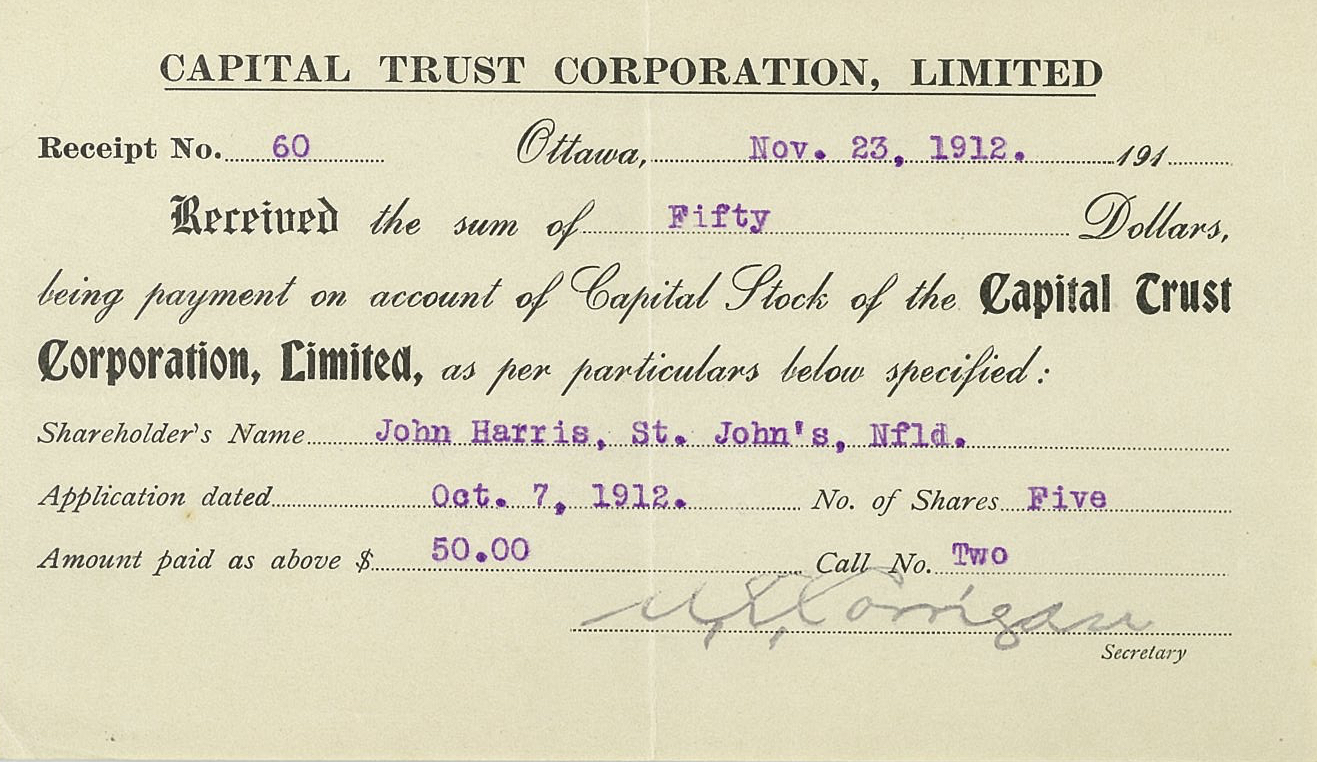 CAPITAL TRUST CORPORATION, LIMITED
Receipt No. 60 Ottawa, Nov. 23, 1912. 191
Received the sum of Fifty Dollars,
being payment on account of Capital Stock of the Capital Trust
Corporation, Limited, as per particulars below specified:
Shareholder's Name John Harris, St. John's, Nfld.
Application dated Oct. 7, 1912. No. of Shares Five
Amount paid as above $ 50.00 Call No. Two
Corrigan
Secretary